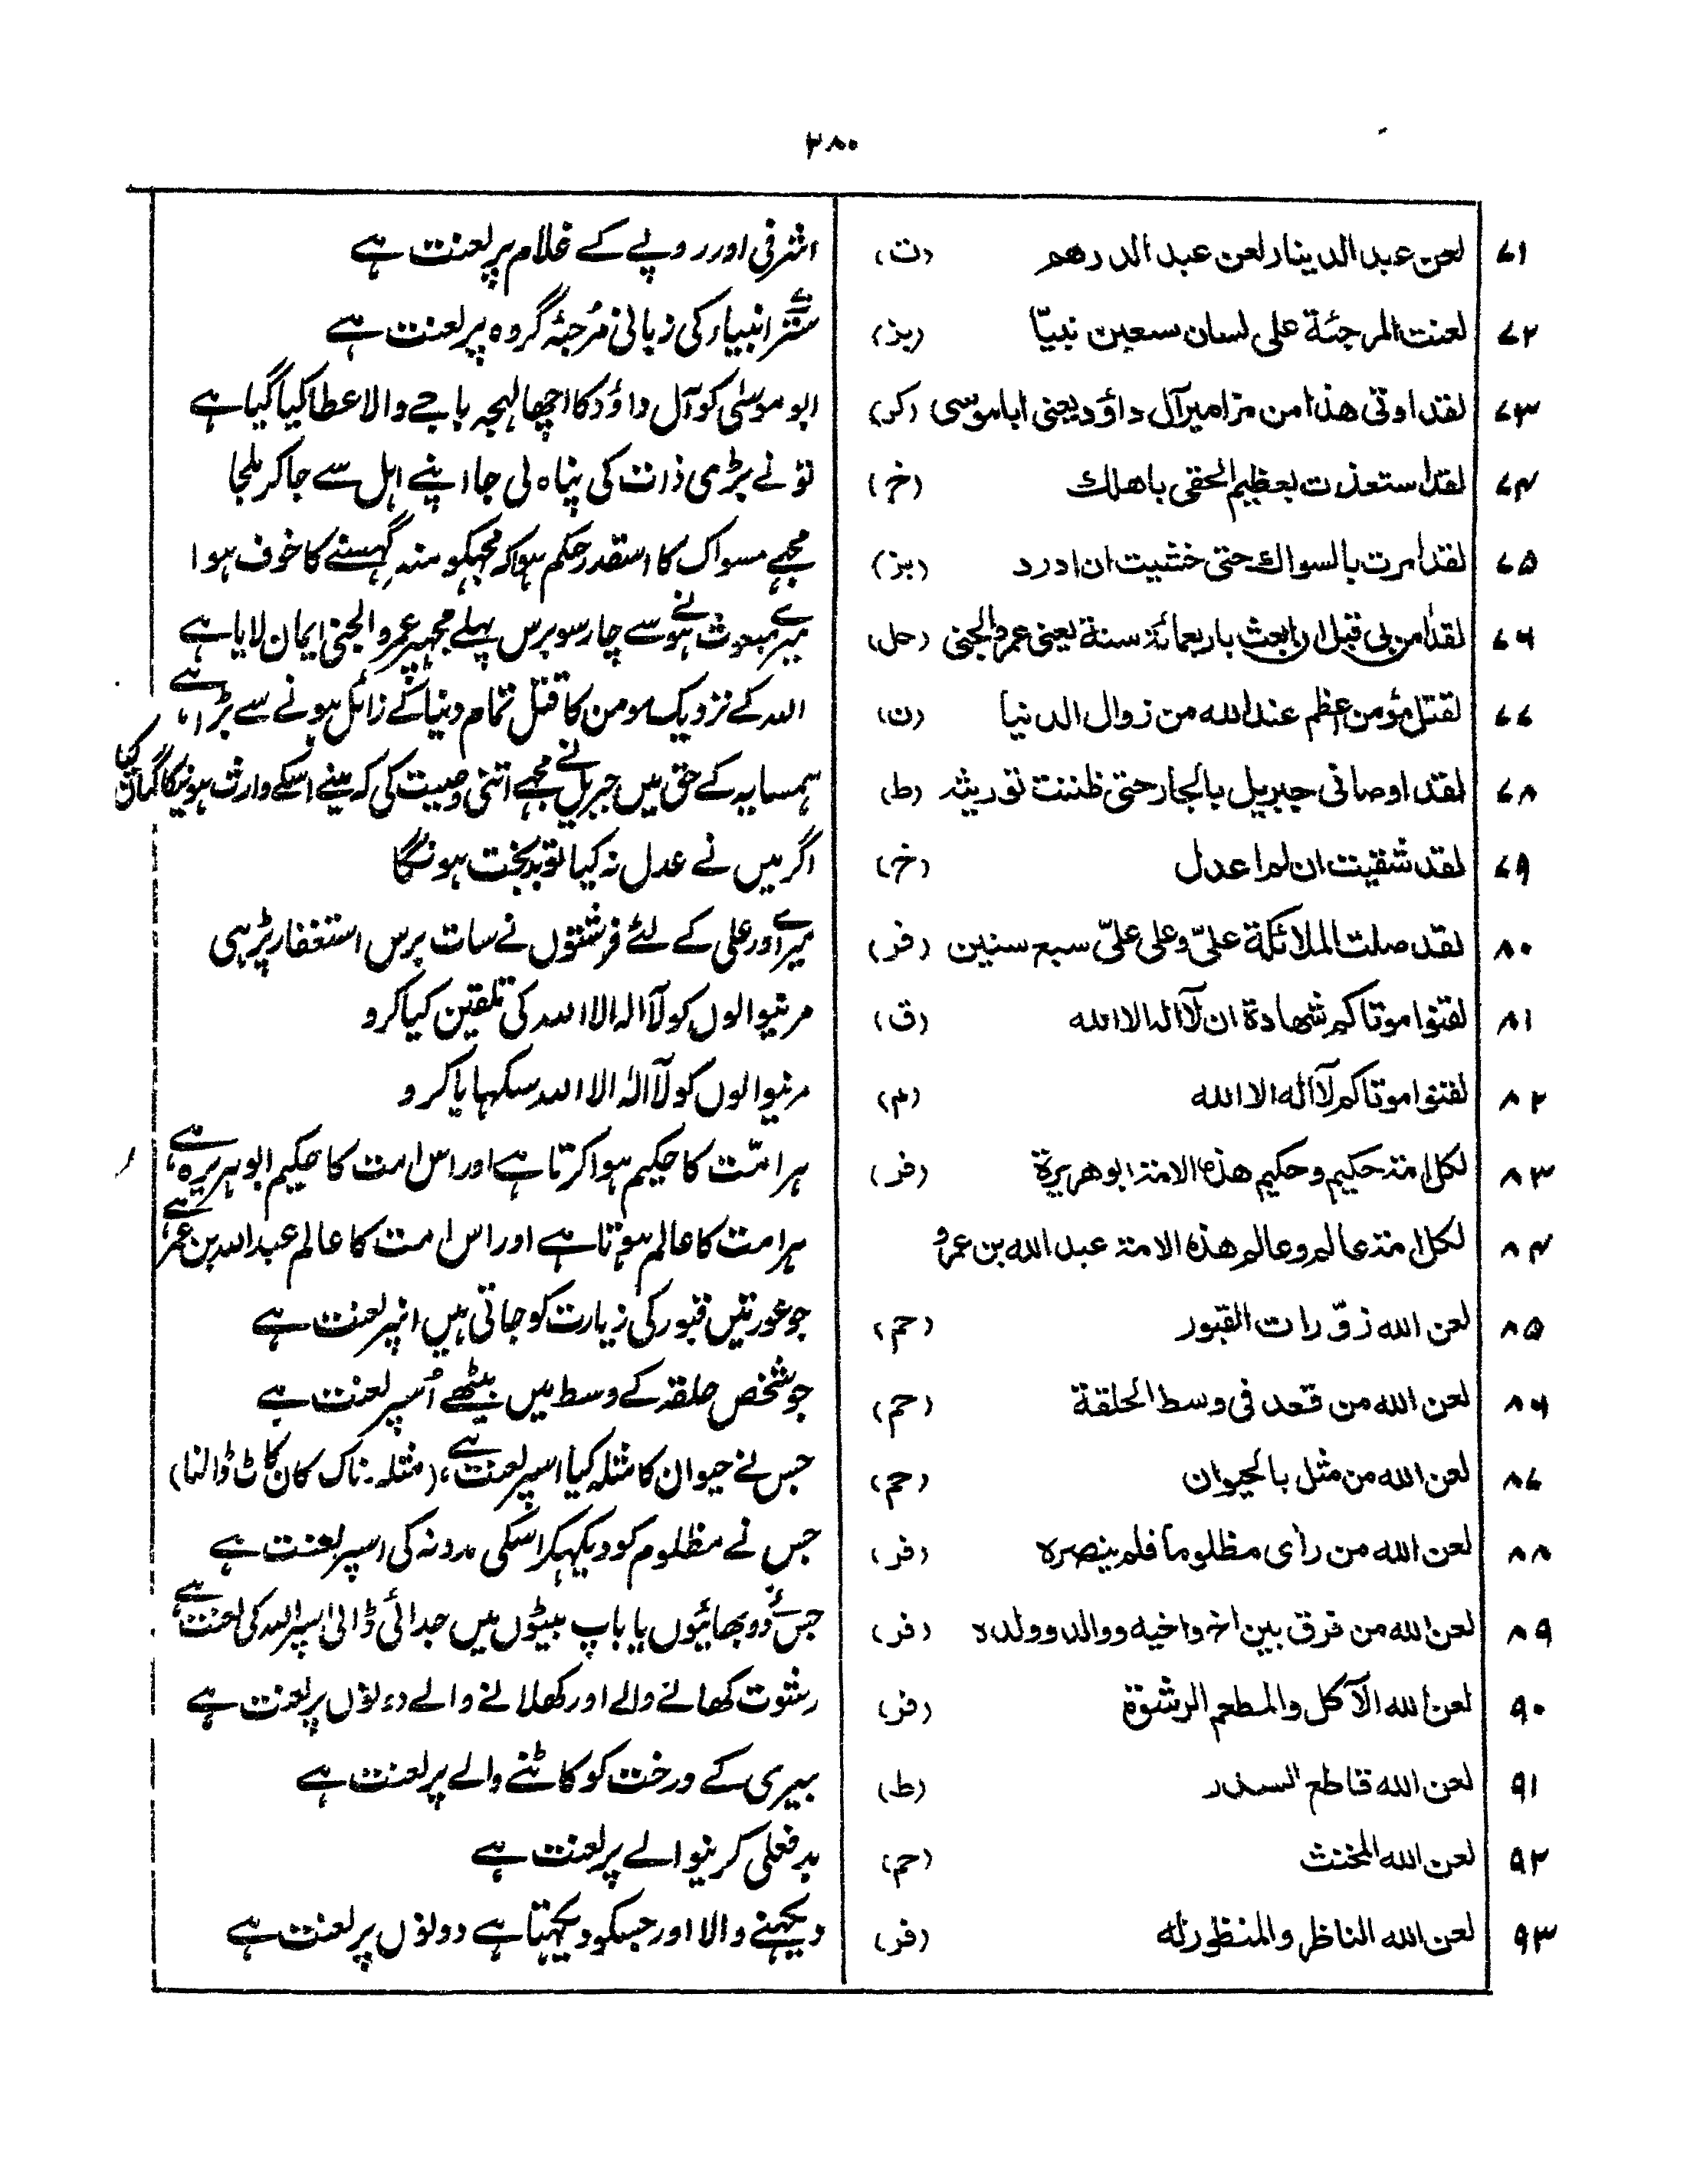 ۲۸۰
۷۱ لعن عبد الدينار لعن عبد الدرهم (ت) اشرفی اور روپے کے غلام پر لعنت ہے
۷۲ لعنت المرجئة على لسان سبعين نبيّا (بز) ستّر انبیاء کی زبانی مُرجئہ گروہ پر لعنت ہے
۷۳ لقد اوتى هذا من مزامير آل داؤد يعنى ابا موسى (كر) ابو موسٰی کو آل داؤد کا اچھا لہجہ باجے والا عطا کیا گیا ہے
۷۴ لقد استعذت بعظيم الحقى باهلك (خ) تو نے بڑی ذات کی پناہ لی جا اپنے اہل سے جا کر ملجا
۷۵ لقد امرت بالسواك حتى خشيت ان ادرد (بز) مجہے مسواک کا اسقدر حکم ہوا کہ مجہکو منہ گہسنے کا خوف ہوا
۷۶ لقد اٰمن بى قبل ان ابعث باربعمائة سنة يعنى عمرو الجنى (حل) میرے مبعوث ہونے سے چار سو برس پہلے مجہپر عمرو الجنی ایمان لایا ہے
۷۷ لقتل مؤمن اعظم عند الله من زوال الدنيا (ن) اللہ کے نزدیک مومن کا قتل تمام دنیا کے زائل ہونے سے بڑا ہے
۷۸ لقد اوصانى جبريل بالجار حتى ظننت توريثه (ط) ہمسایہ کے حق میں جبریل نے مجہے اتنی وصیت کی کہ مینے اسکے وارث ہونیکا گمان کیا
۷۹ لقد شقيت ان لم اعدل (خ) اگر میں نے عدل نہ کیا تو بدبخت ہونگا
۸۰ لقد صلت الملائكة علىّ وعلى علىّ سبع سنين (فر) میرے اور علی کے لئے فرشتوں نے سات برس استغفار پڑہی
۸۱ لقنوا موتاكم شهادة ان لآ اله الا الله (ق) مرنیوالوں کو لآ الہ الا اللہ کی تلقین کیا کرو
۸۲ لقنوا موتاكم لآ اله الا الله (م) مرنیوالوں کو لآ الٰہ الا اللہ سکہایا کرو
۸۳ لكل امة حكيم وحكيم هذه الامة ابو هريرة (فر) ہر امّت کا حکیم ہوا کرتا ہے اور اس امت کا حکیم ابو ہریرہ ہے
۸۴ لكل امة عالم وعالم هذه الامة عبد الله بن عمرو ہر امت کا عالم ہوتا ہے اور اس امت کا عالم عبداللہ بن عمر ہے
۸۵ لعن الله زوّارات القبور (حم) جو عورتیں قبور کی زیارت کو جاتی ہیں انپر لعنت ہے
۸۶ لعن الله من قعد فى وسط الحلقة (حم) جو شخص حلقہ کے وسط میں بیٹھے اُسپر لعنت ہے
۸۷ لعن الله من مثل بالحيوان (حم) جس نے حیوان کا مثلہ کیا اسپر لعنت ہے، (مثلہ۔ ناک کان کاٹ ڈالنا)
۸۸ لعن الله من رأى مظلوما فلم ينصره (فر) جس نے مظلوم کو دیکہکر اسکی مدد نہ کی اسپر لعنت ہے
۸۹ لعن الله من فرق بين اخ واخيه ووالد وولده (فر) جس نے دو بھائیوں یا باپ بیٹوں میں جدائی ڈالی اسپر اللہ کی لعنت ہے
۹۰ لعن الله الآكل والمطعم الرشوة (فر) رشوت کھانے والے اور کھلانے والے دونوں پر لعنت ہے
۹۱ لعن الله قاطع السدر (ط) بیری کے درخت کو کاٹنے والے پر لعنت ہے
۹۲ لعن الله المخنث (حم) بدفعلی کرنیوالے پر لعنت ہے
۹۳ لعن الله الناظر والمنظور له (فر) دیکہنے والا اور جسکو دیکہتا ہے دونوں پر لعنت ہے